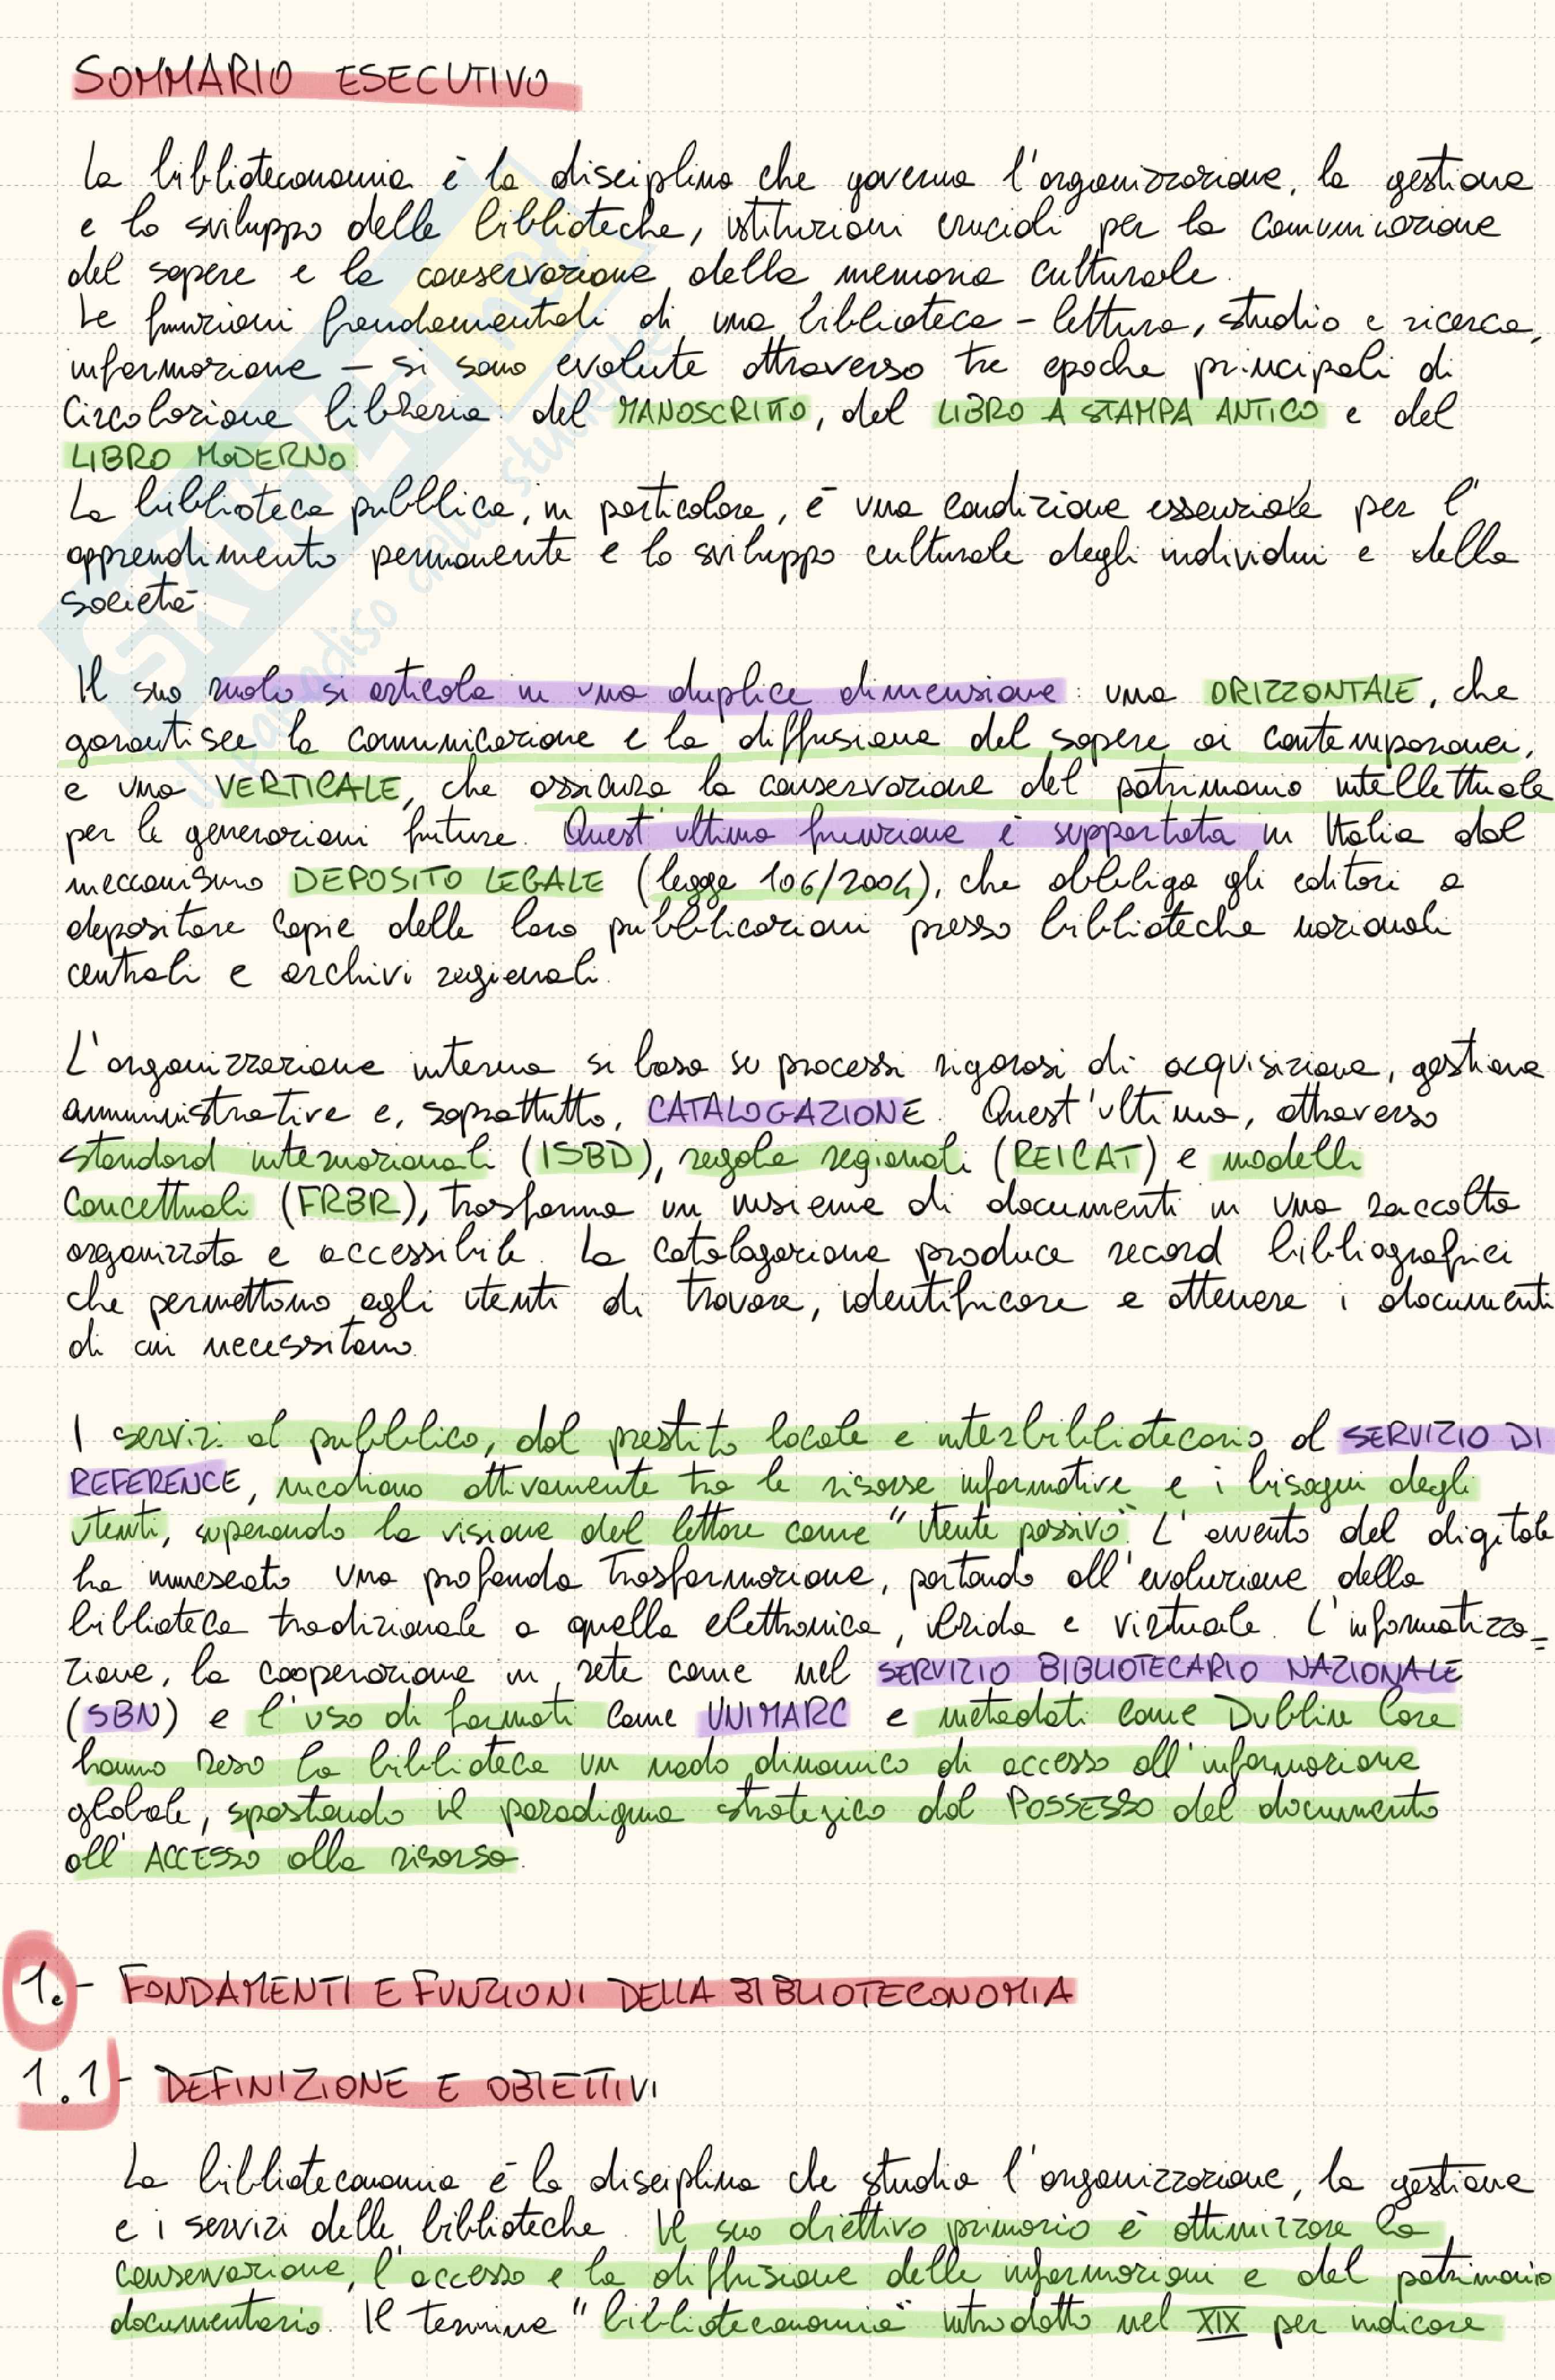 SOMMARIO ESECUTIVO
La biblioteconomia è la disciplina che governa l'organizzazione, la gestione
e lo sviluppo delle biblioteche, istituzioni cruciali per la comunicazione
del sapere e la conservazione della memoria culturale.
Le funzioni fondamentali di una biblioteca - lettura, studio e ricerca,
informazione - si sono evolute attraverso tre epoche principali di
circolazione libraria: del MANOSCRITTO, del LIBRO A STAMPA ANTICO e del
LIBRO MODERNO.
La biblioteca pubblica, in particolare, è una condizione essenziale per l'
apprendimento permanente e lo sviluppo culturale degli individui e della
società.
Il suo ruolo si articola in una duplice dimensione: una ORIZZONTALE, che
garantisce la comunicazione e la diffusione del sapere ai contemporanei,
e una VERTICALE, che assicura la conservazione del patrimonio intellettuale
per le generazioni future. Quest'ultima funzione è supportata in Italia dal
meccanismo DEPOSITO LEGALE (legge 106/2004), che obbliga gli editori a
depositare copie delle loro pubblicazioni presso biblioteche nazionali
centrali e archivi regionali.
L'organizzazione interna si basa su processi rigorosi di acquisizione, gestione
amministrative e, soprattutto, CATALOGAZIONE. Quest'ultima, attraverso
standard internazionali (ISBD), regole regionali (REICAT) e modelli
concettuali (FRBR), trasforma un insieme di documenti in una raccolta
organizzata e accessibile. La catalogazione produce record bibliografici
che permettono agli utenti di trovare, identificare e ottenere i documenti
di cui necessitano.
I servizi al pubblico, dal prestito locale e interbibliotecario al SERVIZIO DI
REFERENCE, mediano attivamente tra le risorse informative e i bisogni degli
utenti, superando la visione del lettore come "utente passivo". L'avvento del digitale
ha innescato una profonda trasformazione, portando all'evoluzione della
biblioteca tradizionale a quella elettronica, ibrida e virtuale. L'informatizza=
zione, la cooperazione in rete come nel SERVIZIO BIBLIOTECARIO NAZIONALE
(SBN) e l'uso di formati come UNIMARC e metadati come Dublin Core
hanno reso la biblioteca un nodo dinamico di accesso all'informazione
globale, spostando il paradigma strategico dal POSSESSO del documento
all'ACCESSO alla risorsa.
1.- FONDAMENTI E FUNZIONI DELLA BIBLIOTECONOMIA
1.1- DEFINIZIONE E OBIETTIVI
La biblioteconomia è la disciplina che studia l'organizzazione, la gestione
e i servizi delle biblioteche. Il suo obiettivo primario è ottimizzare la
conservazione, l'accesso e la diffusione delle informazioni e del patrimonio
documentario. Il termine "biblioteconomia" introdotto nel XIX per indicare